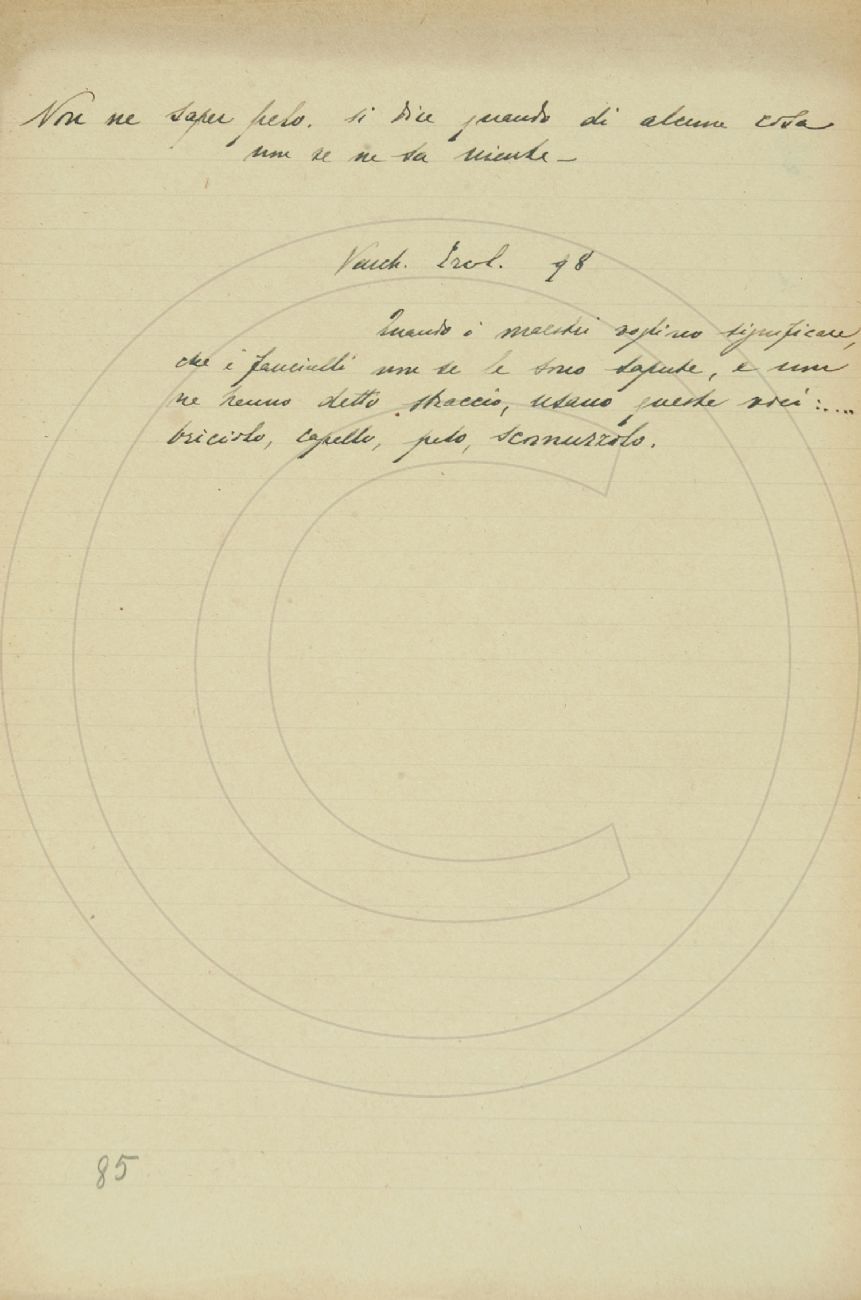 Non ne saper pelo. si dice quando di alcuna cosa
non se ne sa niente —
Varch. Ercol. 98
Quando i maestri vogliono significare,
che i fanciulli non se le sono sapute, e non
ne hanno detto straccio, usano queste voci:....
briciolo, capello, pelo, scomuzzolo.
85